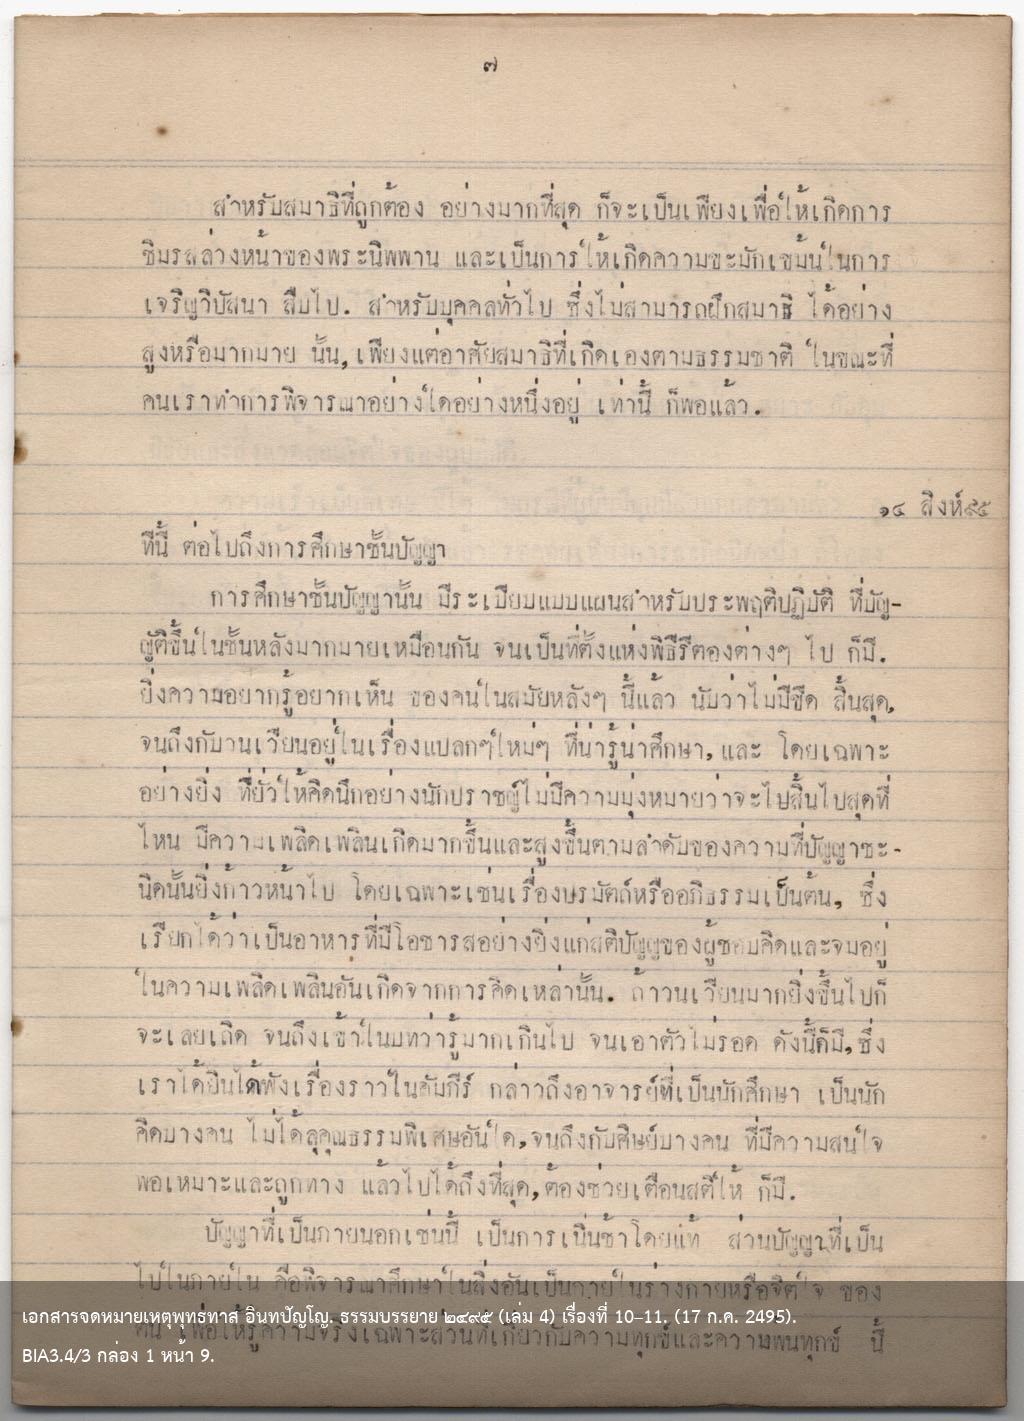 ๗
สำหรับสมาธิที่ถูกต้อง อย่างมากที่สุด ก็จะเป็นเพียงเพื่อให้เกิดการ
ชิมรสล่วงหน้าของพระนิพพาน และเป็นการให้เกิดความขะมักเขม้นในการ
เจริญวิปัสนา สืบไป. สำหรับบุคคลทั่วไป ซึ่งไม่สามารถฝึกสมาธิ ได้อย่าง
สูงหรือมากมาย นั้น, เพียงแต่อาศัยสมาธิที่เกิดเองตามธรรมชาติ ในขณะที่
คนเราทำการพิจารณาอย่างใดอย่างหนึ่งอยู่ เท่านี้ ก็พอแล้ว.
๑๔ สิงห์๙๕
ทีนี้ ต่อไปถึงการศึกษาชั้นปัญญา
การศึกษาชั้นปัญญานั้น มีระเบียบแบบแผนสำหรับประพฤติปฏิบัติ ที่บัญ-
ญัติขึ้นในชั้นหลังมากมายเหมือนกัน จนเป็นที่ตั้งแห่งพิธีรีตองต่างๆ ไป ก็มี.
ยิ่งความอยากรู้อยากเห็น ของคนในสมัยหลังๆ นี้แล้ว นับว่าไม่มีขีด สิ้นสุด,
จนถึงกับวนเวียนอยู่ในเรื่องแปลกๆใหม่ๆ ที่น่ารู้น่าศึกษา, และ โดยเฉพาะ
อย่างยิ่ง ที่ยั่วให้คิดนึกอย่างนักปราชญ์ไม่มีความมุ่งหมายว่าจะไปสิ้นไปสุดที่
ไหน มีความเพลิดเพลินเกิดมากขึ้นและสูงขึ้นตามลำดับของความที่ปัญญาชะ-
นิดนั้นยิ่งก้าวหน้าไป โดยเฉพาะเช่นเรื่องปรมัตถ์หรืออภิธรรมเป็นต้น, ซึ่ง
เรียกได้ว่าเป็นอาหารที่มีโอชารสอย่างยิ่งแก่สติปัญญของผู้ชอบคิดและจมอยู่
ในความเพลิดเพลินอันเกิดจากการคิดเหล่านั้น. ถ้าวนเวียนมากยิ่งขึ้นไปก็
จะเลยเถิด จนถึงเข้าในบทว่ารู้มากเกินไป จนเอาตัวไม่รอด ดังนี้ก็มี, ซึ่ง
เราได้ยินได้ฟังเรื่องราวในคัมภีร์ กล่าวถึงอาจารย์ที่เป็นนักศึกษา เป็นนัก
คิดบางคน ไม่ได้ลุคุณธรรมพิเศษอันใด, จนถึงกับศิษย์บางคน ที่มีความสนใจ
พอเหมาะและถูกทาง แล้วไปได้ถึงที่สุด, ต้องช่วยเตือนสติให้ ก็มี.
ปัญญาที่เป็นภายนอกเช่นนี้ เป็นการเนิ่นช้าโดยแท้ ส่วนปัญญาที่เป็น
ไปในภายใน คือพิจารณาศึกษาในสิ่งอันเป็นภายในร่างกายหรือจิตใจ ของ
คน เพื่อให้รู้ความจริงเฉพาะส่วนที่เกี่ยวกับความทุกข์และความพ้นทุกข์ นี้
เอกสารจดหมายเหตุพุทธทาส อินทปัญโญ. ธรรมบรรยาย ๒๔๙๕ (เล่ม 4) เรื่องที่ 10–11. (17 ก.ค. 2495).
BIA3.4/3 กล่อง 1 หน้า 9.